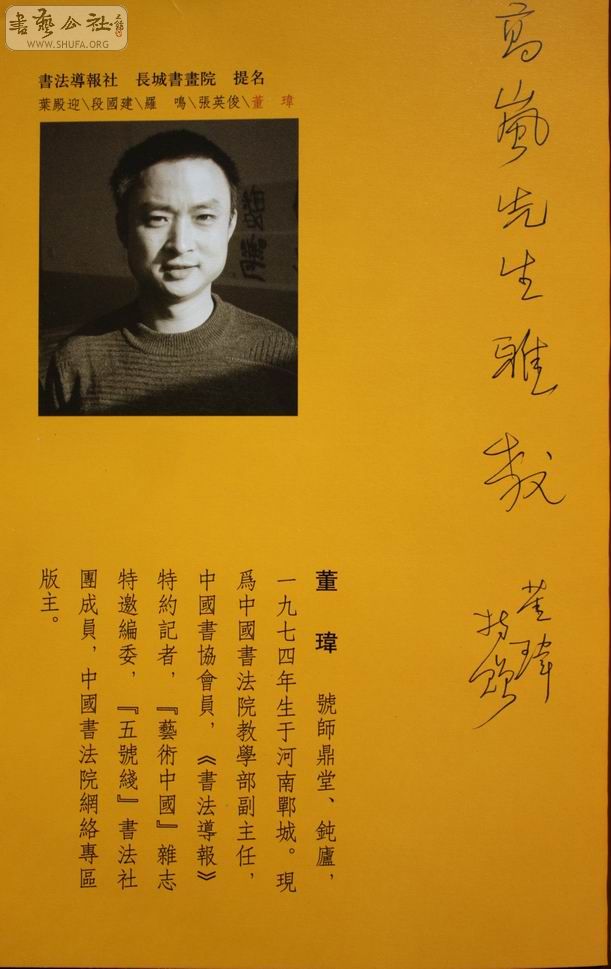 書藝公社
WWW.SHUFA.ORG
書法導報社 長城書畫院 提名
葉殿迎\段國建\羅 鳴\張英俊\董 瑋
先生雅教
董瑋
特贈
董 瑋 號師鼎堂、鈍廬，
一九七四年生于河南鄲城。現
爲中國書法院教學部副主任，
中國書協會員，《書法導報》
特約記者，『藝術中國』雜志
特邀編委，『五號綫』書法社
團成員，中國書法院網絡專區
版主。